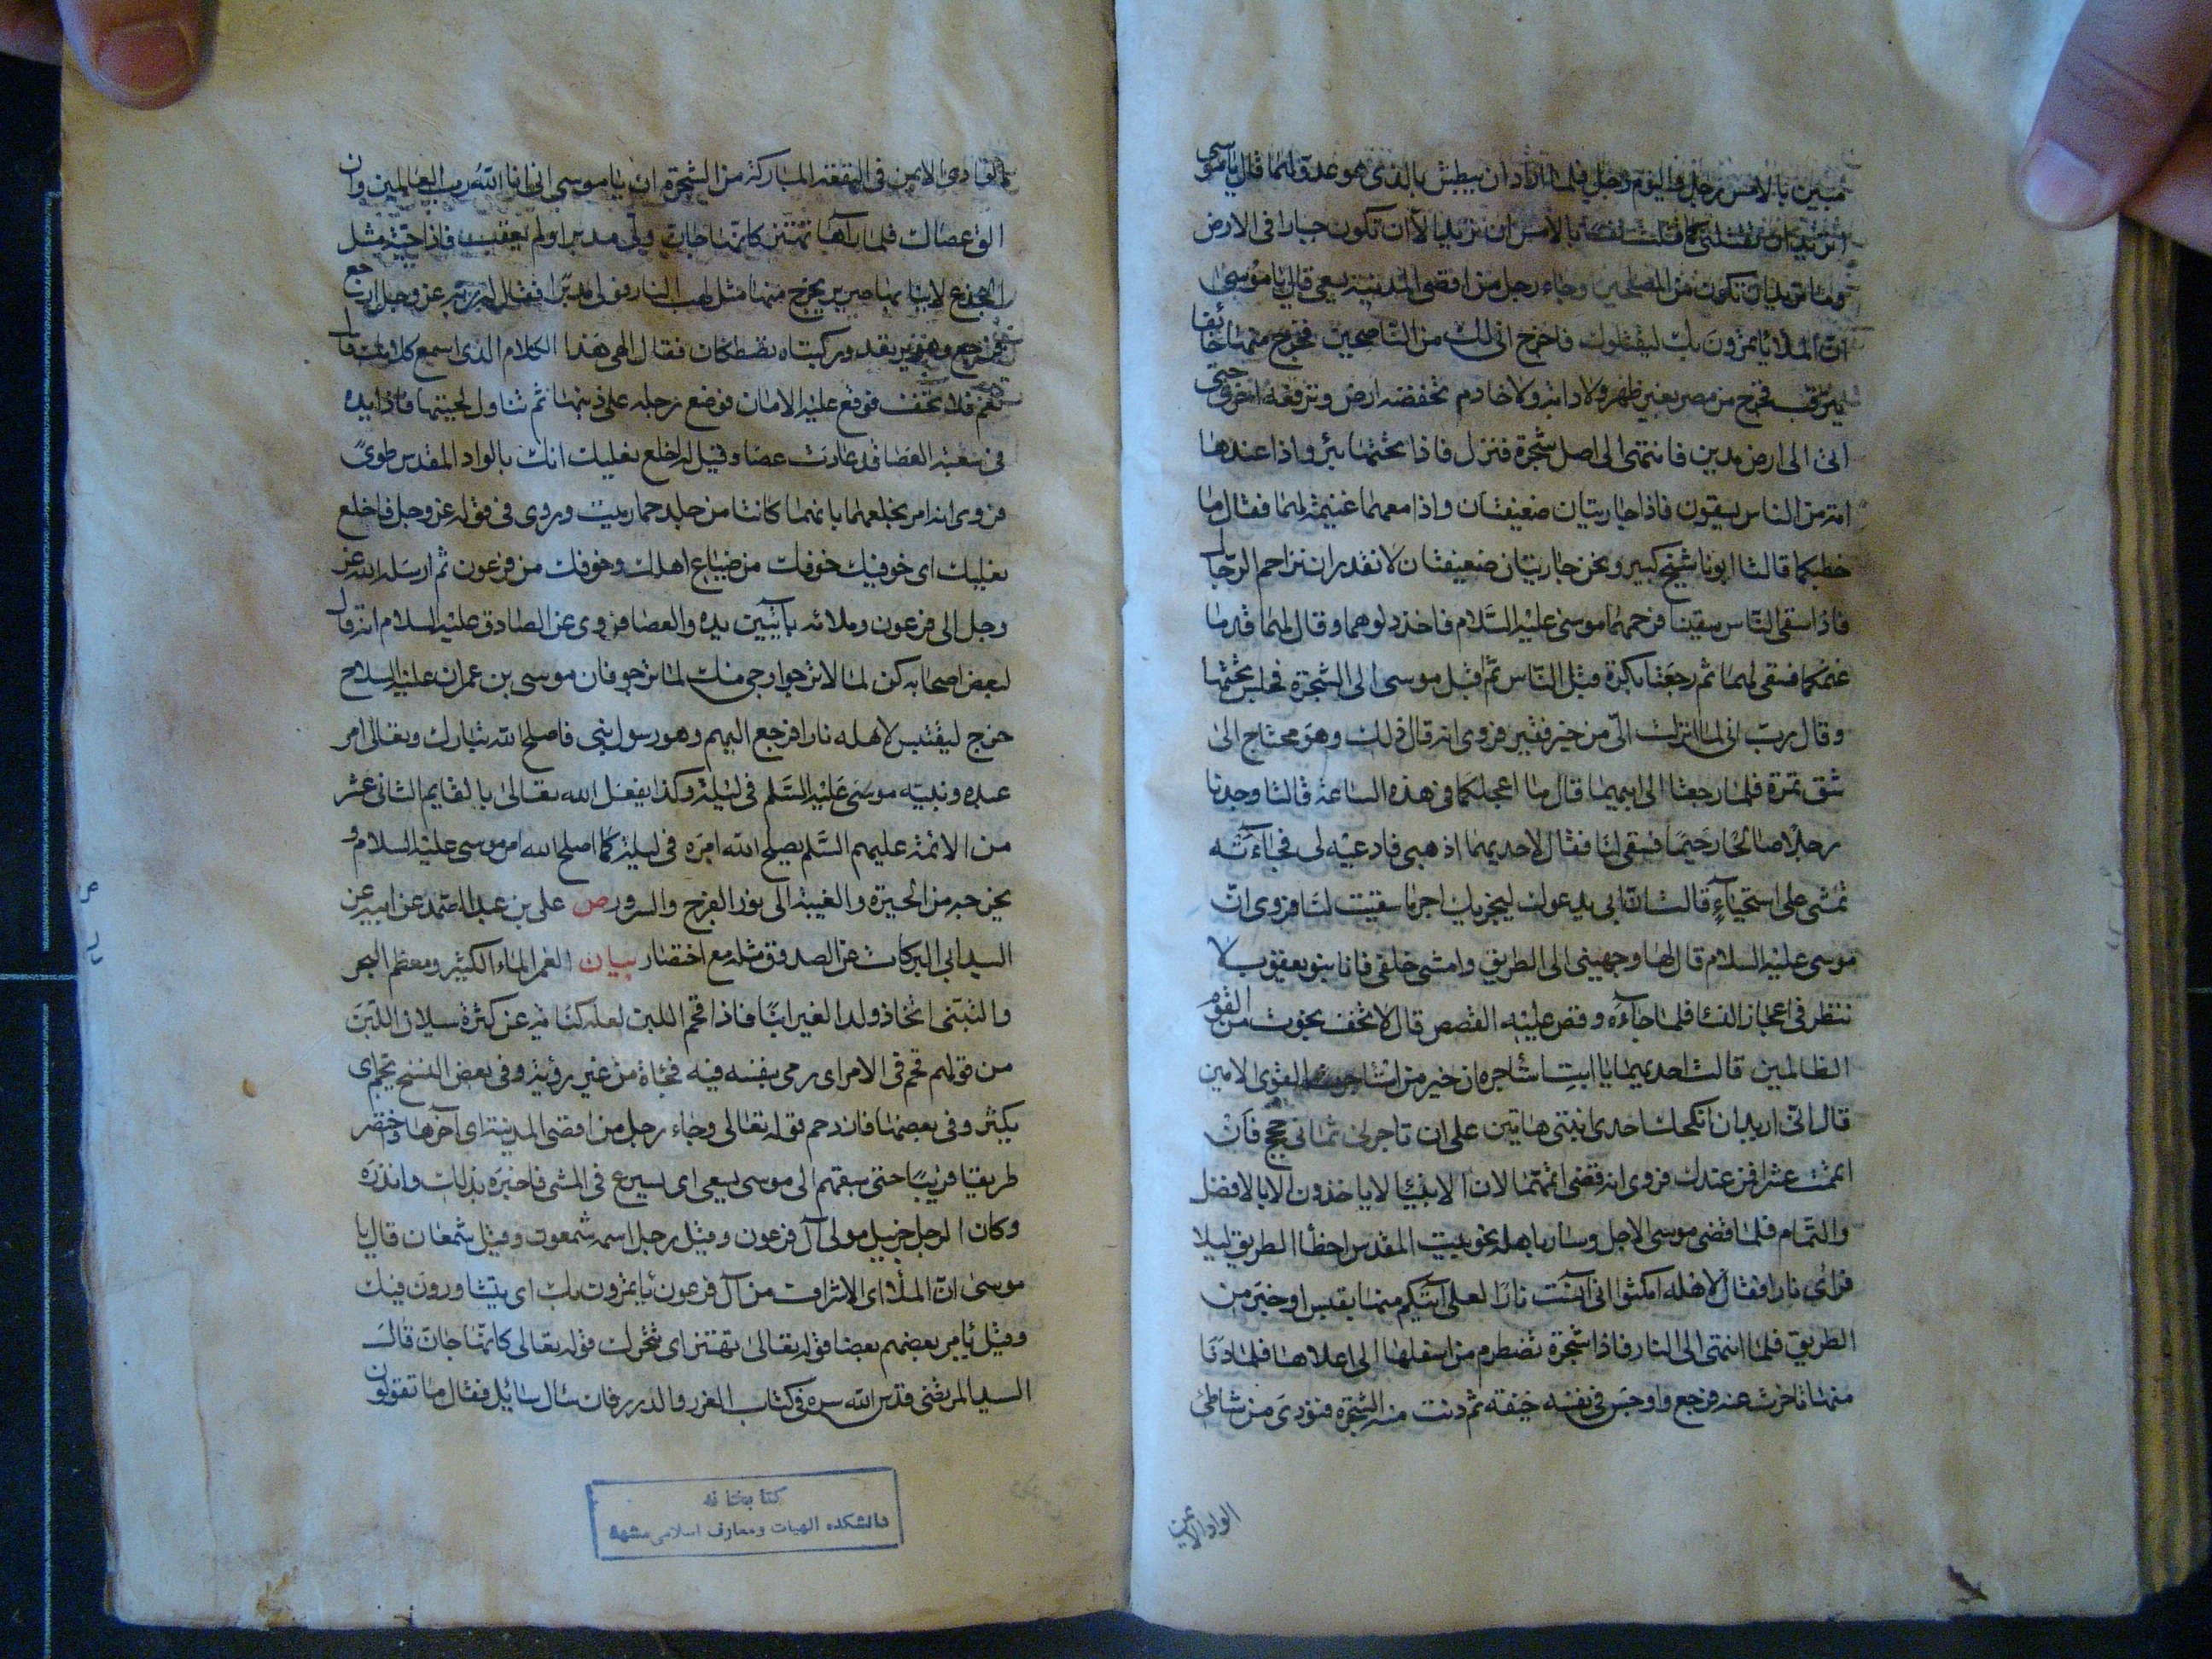 مبين بالامس رجل واليوم رجل فلما اراد ان يبطش بالذى هو عدو لهما قال يا موسى
اتريد ان تقتلنى كما قتلت نفسا بالامس ان تريد الا ان تكون جبارا فى الارض
وما تريد ان تكون من المصلحين وجاء رجل من اقصى المدينة يسعى قال يا موسى
ان الملأ يأتمرون بك ليقتلوك فاخرج انى لك من الناصحين فخرج منها خائفا
يترقب فخرج من مصر بغير ظهر ولا دابة ولا خادم تخفضه ارض وترفعه اخرى حتى
اتى الى ارض مدين فانتهى الى اصل شجرة فنزل فاذا تحتها بئر واذا عندها
امة من الناس يسقون فاذا جاريتان ضعيفتان واذا معهما غنيمة لهما فقال ما
خطبكما قالتا ابونا شيخ كبير ونحن جاريتان ضعيفتان لا نقدر ان نزاحم الرجال
فاذا سقى الناس سقينا فرحمهما موسى عليه السلام فاخذ دلوهما وقال لهما قدما
غنمكما فسقى لهما ثم رجعتا بكرة قبل الناس ثم اقبل موسى الى الشجرة فجلس تحتها
وقال رب انى لما انزلت الى من خير فقير فروى انه قال ذلك وهو محتاج الى
شق تمرة فلما رجعتا الى ابيهما قال ما اعجلكما فى هذه الساعة قالتا وجدنا
رجلا صالحا رحيما فسقى لنا فقال لاحديهما اذهبى فادعيه لى فجاءته
تمشى على استحياء قالت ان ابى يدعوك ليجزيك اجر ما سقيت لنا فروى ان
موسى عليه السلام قال لها وجهينى الى الطريق وامشى خلفى فانا بنو يعقوب لا
ننظر فى اعجاز النسا فلما جاءه وقص عليه القصص قال لا تخف نجوت من القوم
الظالمين قالت احديهما يا ابت استأجره ان خير من استأجرت القوى الامين
قال انى اريد ان انكحك احدى ابنتى هاتين على ان تأجرنى ثمانى حجج فان
اتممت عشرا فمن عندك فروى انه قضى اتمهما لان الانبيا لا ياخذون الا بالافضل
والتمام فلما قضى موسى الاجل وسار باهله نحو بيت المقدس اخطأ الطريق ليلا
فرأى نارا فقال لاهله امكثوا انى آنست نارا لعلى آتيكم منها بقبس او خبر من
الطريق فلما انتهى الى النار فاذا شجرة تضطرم من اسفلها الى اعلاها فلما دنا
منها تاخرت عنه فرجع واوجس فى نفسه خيفة ثم دنت منه الشجرة فنودى من شاطئ
الواد الايمن
الواد الايمن فى البقعة المباركة من الشجرة ان يا موسى انى انا الله رب العالمين وان
الق عصاك فلما رآها تهتز كانها جان ولى مدبرا ولم يعقب فاذا حية مثل
الجذع لانيابها صرير يخرج منها مثل لهب النار فولى مدبرا فقال له ربه عز وجل ارجع
فرجع وهو يرتعد وركبتاه تصطكان فقال الهى هذا الكلام الذى اسمع كلامك قال
نعم فلا تخف فوقع عليه الامان فوضع رجله على ذنبها ثم تناول لحييها فاذا يده
فى شعبة العصا قد عادت عصا وقيل له اخلع نعليك انك بالواد المقدس طوى
فروى انه امر بخلعهما بانهما كانتا من جلد حمار ميت وروى فى قوله عز وجل فاخلع
نعليك اى خوفيك خوفك من ضياع اهلك وخوفك من فرعون ثم ارسله الله عز
وجل الى فرعون وملائه بآيتين يده والعصا فروى عن الصادق عليه السلام انه قال
لبعض اصحابه كن لما لا ترجو ارجى منك لما ترجو فان موسى بن عمران عليه السلام
خرج ليقتبس لاهله نارا فرجع اليهم وهو رسول نبى فاصلح الله تبارك وتعالى امر
عبده ونبيه موسى عليه السلم فى ليلة وكذا يفعل الله تعالى بالقايم الثانى عشر
من الائمة عليهم السلم يصلح الله امره فى ليلة كما اصلح الله امر موسى عليه السلام و
يخرجه من الحيرة والغيبة الى نور الفرج والسرور ص على بن عبد الصمد عن ابيه عن
السيد ابى البركات عن الصدوق مثله مع اختصار بيان الغمر الماء الكثير ومعظم البحر
والتبنى اتخاذ ولد الغير ابنا فاذا قحم اللبن لعله كناية عن كثرة سيلان اللبن
من قولهم قحم فى الامر اى رمى بنفسه فيه فجاة من غير روية وفى بعض النسخ يجم اى
يكثر وفى بعضها فازدحم قوله تعالى وجاء رجل من اقصى المدينة اى آخرها واختصر
طريقا قريبا حتى سبقهم الى موسى يسعى اى يسرع فى المشى فاخبره بذلك وانذره
وكان الرجل حزبيل مولى آل فرعون وقيل رجل اسمه شمعون وقيل شمعان قال يا
موسى ان الملأ اى الاشراف من آل فرعون يأتمرون بك اى يتشاورون فيك
وقيل يأمر بعضهم بعضا قوله تعالى تهتز اى تتحرك قوله تعالى كانها جان قال
السيد المرتضى قدس الله سره فى كتاب الغرر والدرر فان سأل سائل فقال ما تقولون
كتابخانه
دانشكده الهيات ومعارف اسلامى مشهد